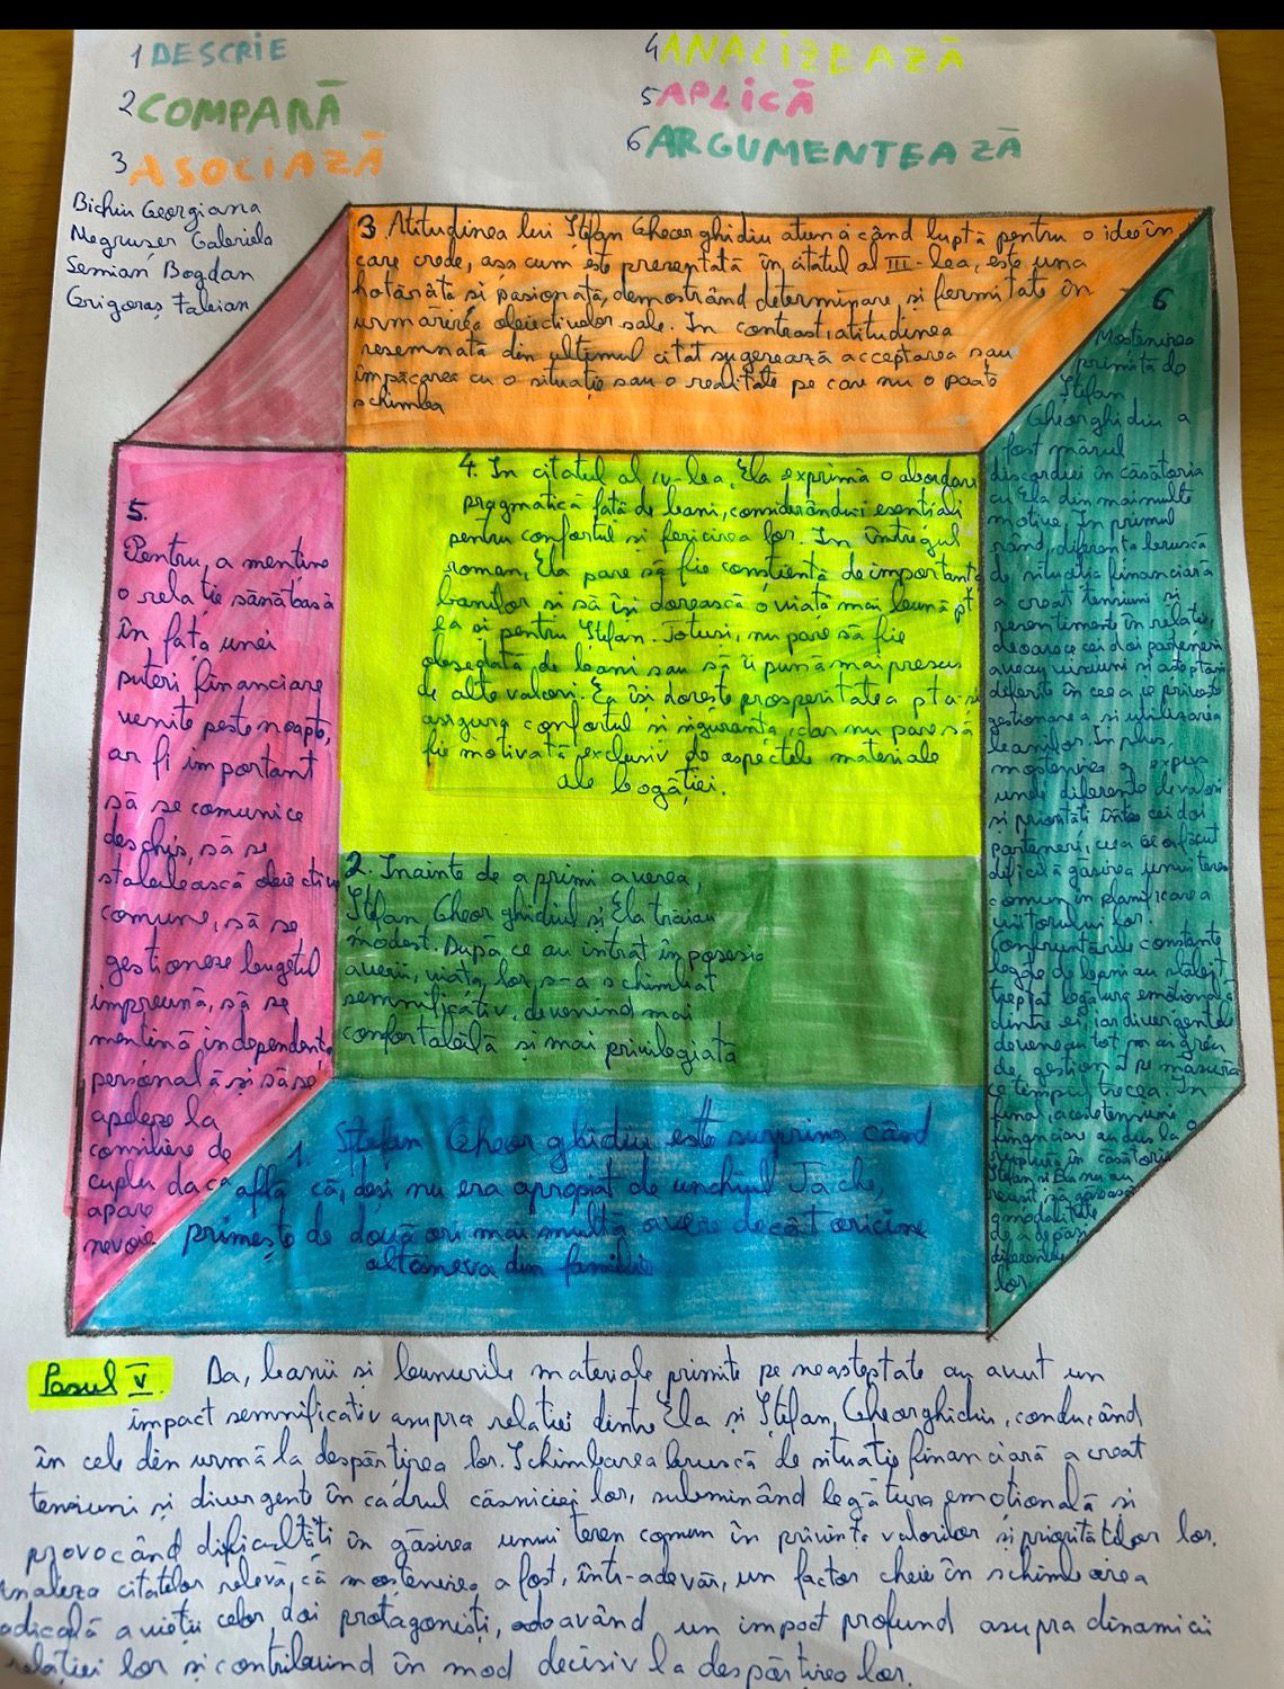 1 DESCRIE
2 COMPARĂ
3 ASOCIAZĂ
4 ANALIZEAZĂ
5 APLICĂ
6 ARGUMENTEAZĂ
Bichin Georgiana
Negruser Gabriela
Semian Bogdan
Grigoraș Fabian
3. Atitudinea lui Ștefan Gheorghidiu atunci când luptă pentru o idee în
care crede, asa cum este prezentată în citatul al III-lea, este una
hotărâtă si pasionată, demostrând determinare si fermitate în
urmărirea obiectivelor sale. In contrast, atitudinea
resemnată din ultimul citat sugerează acceptarea sau
împăcarea cu o situație sau o realitate pe care nu o poate
schimba
4. In citatul al IV-lea, Ela exprimă o abordare
pragmatică față de bani, considerându-i esentiali
pentru confortul si fericirea lor. In întregul
roman, Ela pare să fie constientă de importanta
banilor si să își dorească o viată mai bună pt
ea și pentru Ștefan. Totusi, nu pare să fie
obsedată de bani sau să îi pună mai presus
de alte valori. Ea își dorește prosperitatea pt a-si
asigura confortul si siguranta, dar nu pare să
fie motivată exclusiv de aspectele materiale
ale bogăției.
5.
Pentru a mentine
o relație sănătoasă
în fața unei
puteri financiare
venite peste noapte,
ar fi important
să se comunice
deschis, să se
stabilească obiective
comune, să se
gestioneze bugetul
împreună, să se
mentină independenta
personală și să se
apeleze la
consiliere de
cuplu dacă
apare
nevoie
2. Inainte de a primi averea,
Ștefan Gheorghidiu și Ela trăiau
modest. După ce au intrat în posesia
averii, viața lor s-a schimbat
semnificativ, devenind mai
confortabilă si mai privilegiată
1. Ștefan Gheorghidiu este surprins când
află că, desi nu era apropiat de unchiul Tache,
primește de două ori mai multă avere decât oricine
altcineva din familie
6
Mostenirea
primită de
Ștefan
Gheorghidiu a
fost mărul
discordiei în căsătoria
cu Ela din mai multe
motive. In primul
rând, diferența bruscă
de situație financiară
a creat tensiuni si
resentimente în relație,
deoarece cei doi parteneri
aveau viziuni si asteptări
diferite în ceea ce priveste
gestionarea si utilizarea
banilor. In plus,
mostenirea a expus
unele diferente de valori
si priorităti între cei doi
parteneri, ceea ce a făcut
dificilă găsirea unui teren
comun în planificarea
viitorului lor.
Confruntările constante
legate de bani au slăbit
treptat legătura emotională
dintre ei, iar divergentele
deveneau tot mai greu
de gestionat pe măsură
ce timpul trecea. In
final, aceste tensiuni
financiare au dus la o
ruptură în căsătorie
Ștefan si Ela nu au
reusit să găsească
o modalitate
de a depăsi
diferentele
lor
Pasul V. Da, banii si bunurile materiale primite pe neasteptate au avut un
impact semnificativ asupra relatiei dintre Ela si Ștefan Gheorghidiu, conducând
în cele din urmă la despărțirea lor. Schimbarea bruscă de situatie financiară a creat
tensiuni și divergente în cadrul căsniciei lor, subminând legătura emotională si
provocând dificultăti în găsirea unui teren comun în privinta valorilor si priorităților lor.
Analiza citatelor relevă, că mostenirea a fost, într-adevăr, un factor cheie în schimbarea
radicală a vieții celor doi protagoniști, având un impact profund asupra dinamicii
relației lor și contribuind în mod decisiv la despărtirea lor.